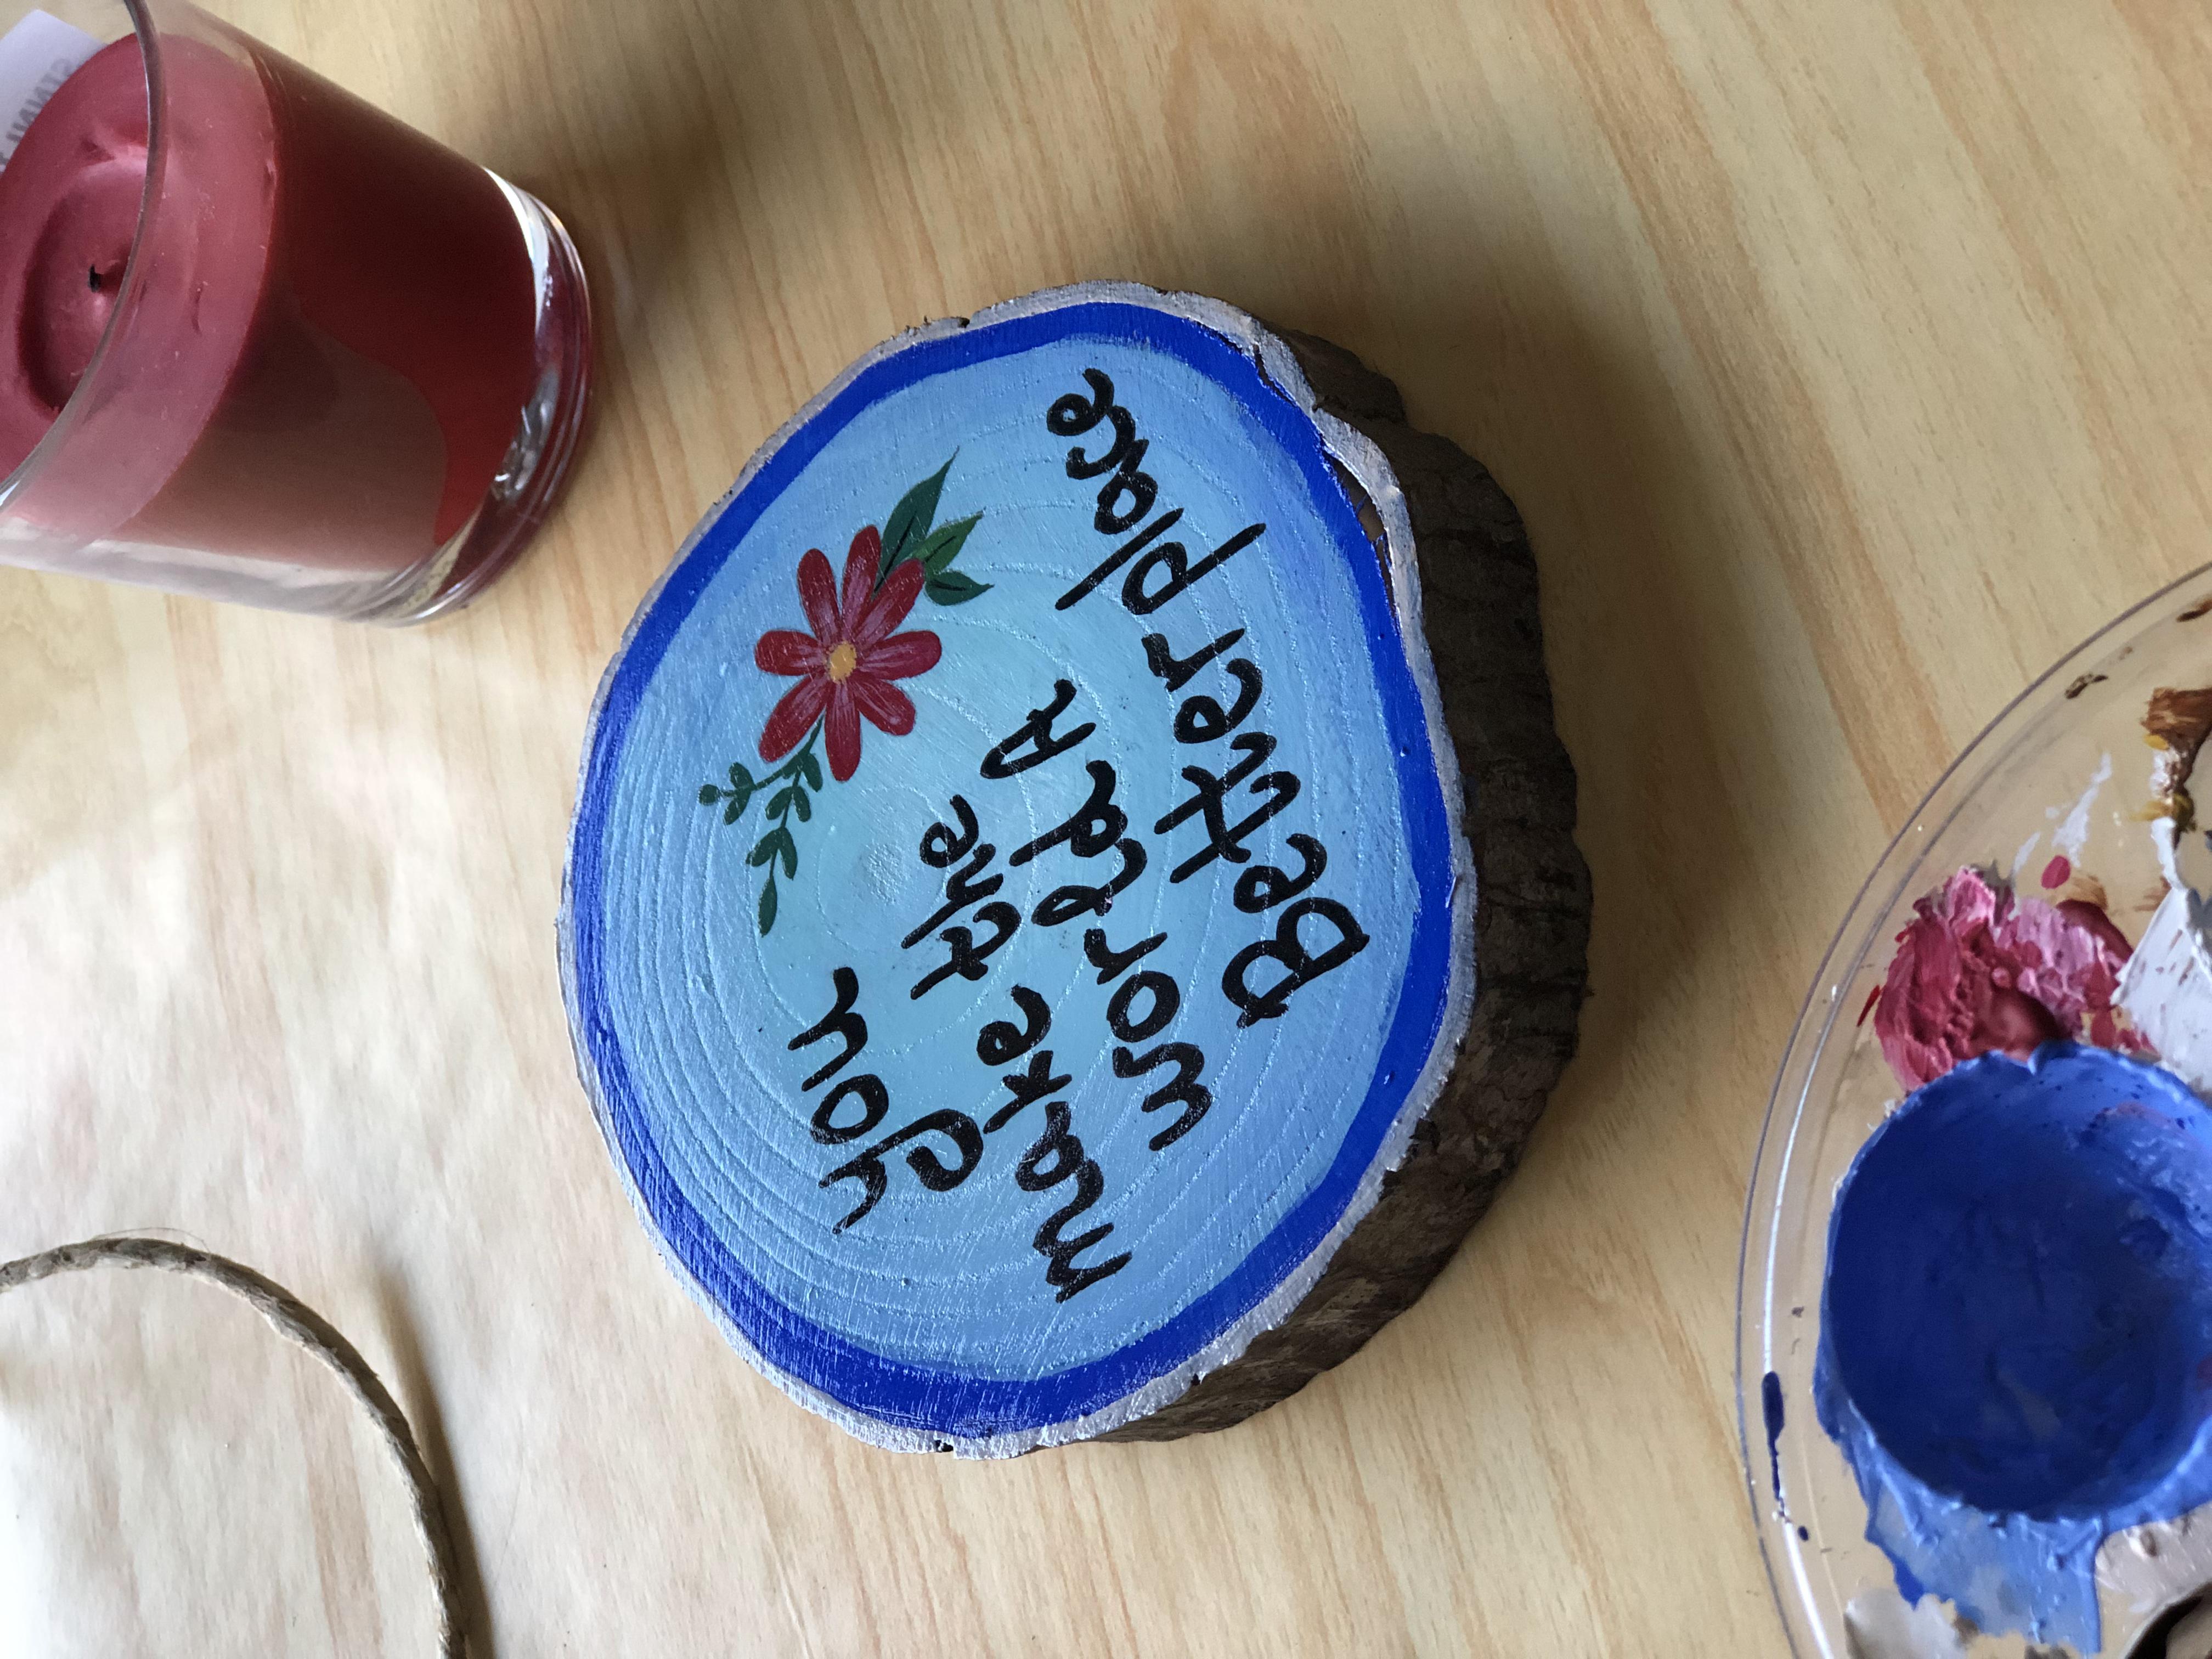 you
make the
world A
Better place